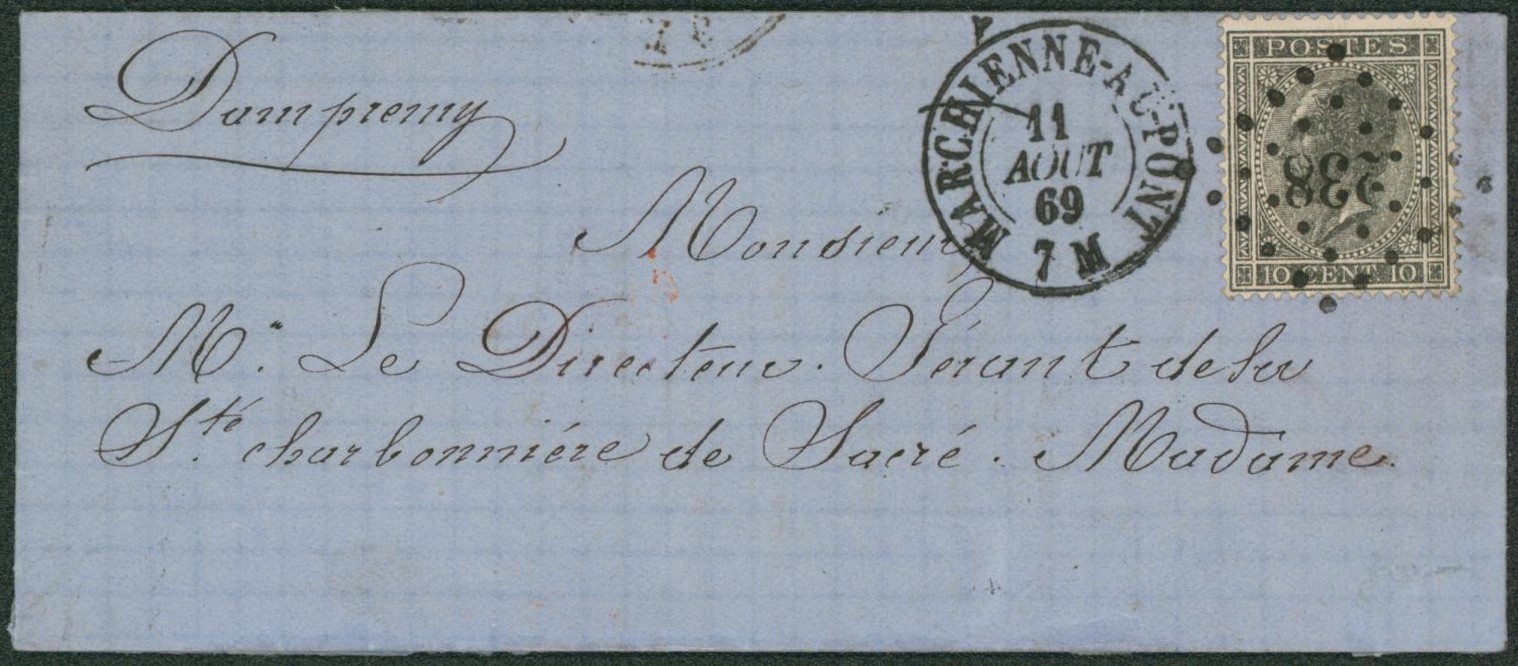 Dampremy
MARCHIENNE-AU-PONT
11
AOUT
69
7 M
POSTES
238
10 CENT. 10
Monsieur
M." Le Directeur. Gérant de la
S.té charbonniére de Sacré. Madame.